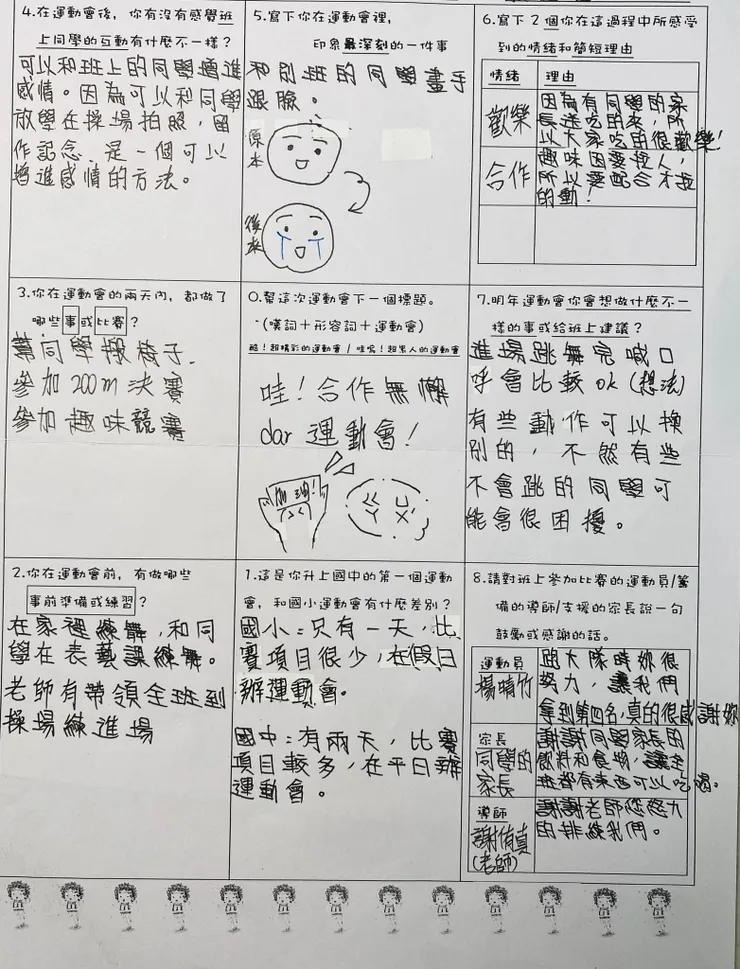 4.在運動會後，你有沒有感覺班
上同學的互動有什麼不一樣？
可以和班上的同學增進
感情。因為可以和同學
放學在操場拍照，留
作記念，是一個可以
增進感情的方法。
5.寫下在運動會裡，
印象最深刻的一件事
和別班的同學畫手
跟臉。
原本
後來
6.寫下 2 個你在這過程中所感受
到的情緒和簡短理由
情緒
理由
歡樂
因為有同學的家
長送吃的來，所
以大家吃的很歡樂！
合作
趣味因要拉人，
所以要配合才拉
的動！
3.你在運動會的兩天內，都做了
哪些事或比賽？
幫同學搬椅子.
參加 200m 決賽
參加趣味競賽
0.幫這次運動會下一個標題。
(嘆詞＋形容詞＋運動會)
酷！超精彩的運動會 / 哇嗚！超累人的運動會
哇！合作無懈
dar 運動會！
加油！
7.明年運動會你會想做什麼不一
樣的事或給班上建議？
進場跳舞完喊口
呼會比較ok（想法）
有些動作可以換
別的，不然有些
不會跳的同學可
能會很困擾。
2.你在運動會前，有做哪些
事前準備或練習？
在家裡練舞，和同
學在表藝課練舞。
老師有帶領全班到
操場練進場
1.這是你升上國中的第一個運動
會，和國小運動會有什麼差別？
國小：只有一天，比
賽項目很少，在假日
辦運動會。
國中：有兩天，比賽
項目較多，在平日辦
運動會。
8.請對班上參加比賽的運動員/籌
備的導師/支援的家長說一句
鼓勵或感謝的話。
運動員
楊晴竹
跑大隊時妳很
努力，讓我們
拿到第四名，真的很感謝妳
家長
同學的
家長
謝謝同學家長的
飲料和食物，讓全
班都有東西可以吃喝。
導師
謝侑真
(老師)
謝謝老師您努力
的排練我們。